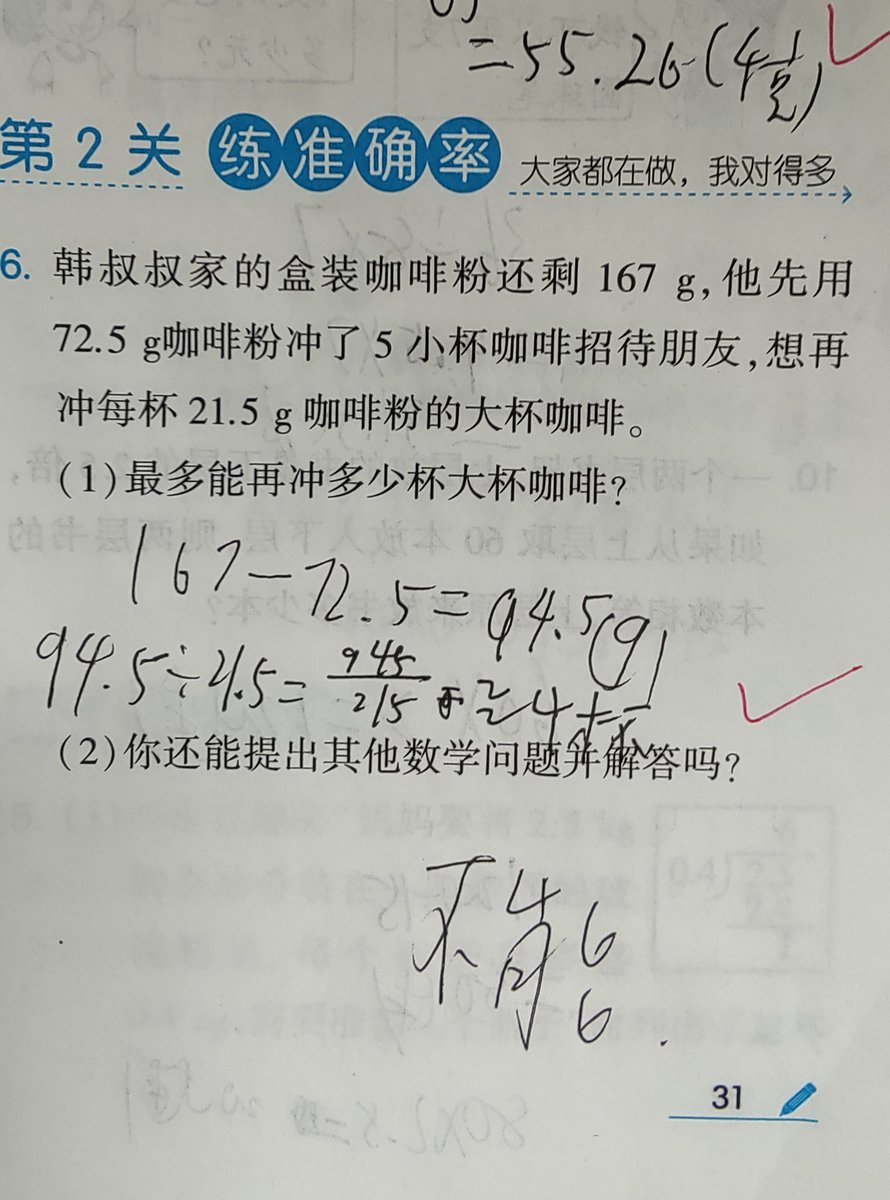 =55.26(千克)
第2关 练准确率 大家都在做，我对得多
6. 韩叔叔家的盒装咖啡粉还剩 167 g，他先用
72.5 g咖啡粉冲了 5 小杯咖啡招待朋友，想再
冲每杯 21.5 g 咖啡粉的大杯咖啡。
(1)最多能再冲多少杯大杯咖啡？
167-72.5=94.5(g)
94.5÷21.5=945/215≈4杯
(2)你还能提出其他数学问题并解答吗？
不能
31